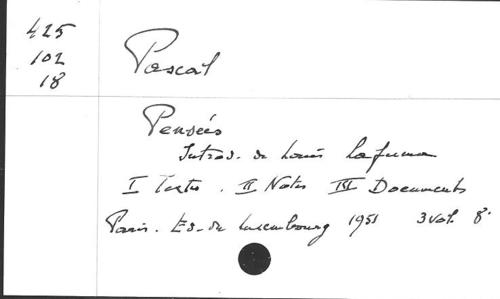 425
102
18
Pascal
Pensées
Introd. de Louis Lafuma
I Textes. II Notes III Documents
Paris. Ed. du Luxembourg 1951 3 vol. 8°